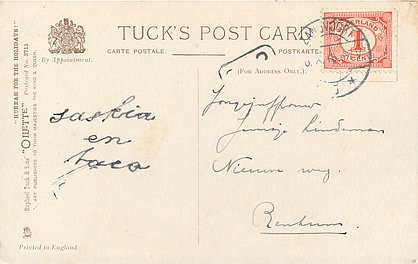 TUCK'S POST CARD
CARTE POSTALE.
POSTKARTE
(FOR ADDRESS ONLY.)
By Appointment.
"HURRAH FOR THE HOLIDAYS!"
Raphael Tuck & Sons' "OILETTE" Postcard No.
ART PUBLISHERS TO THEIR MAJESTIES THE KING & QUEEN.
NEDERLAND
1
CENT
saskia
en
taco
Jongejufvrouw
Jeunsje Lindeman
Nieuwe weg.
Renkum.
Printed in England.